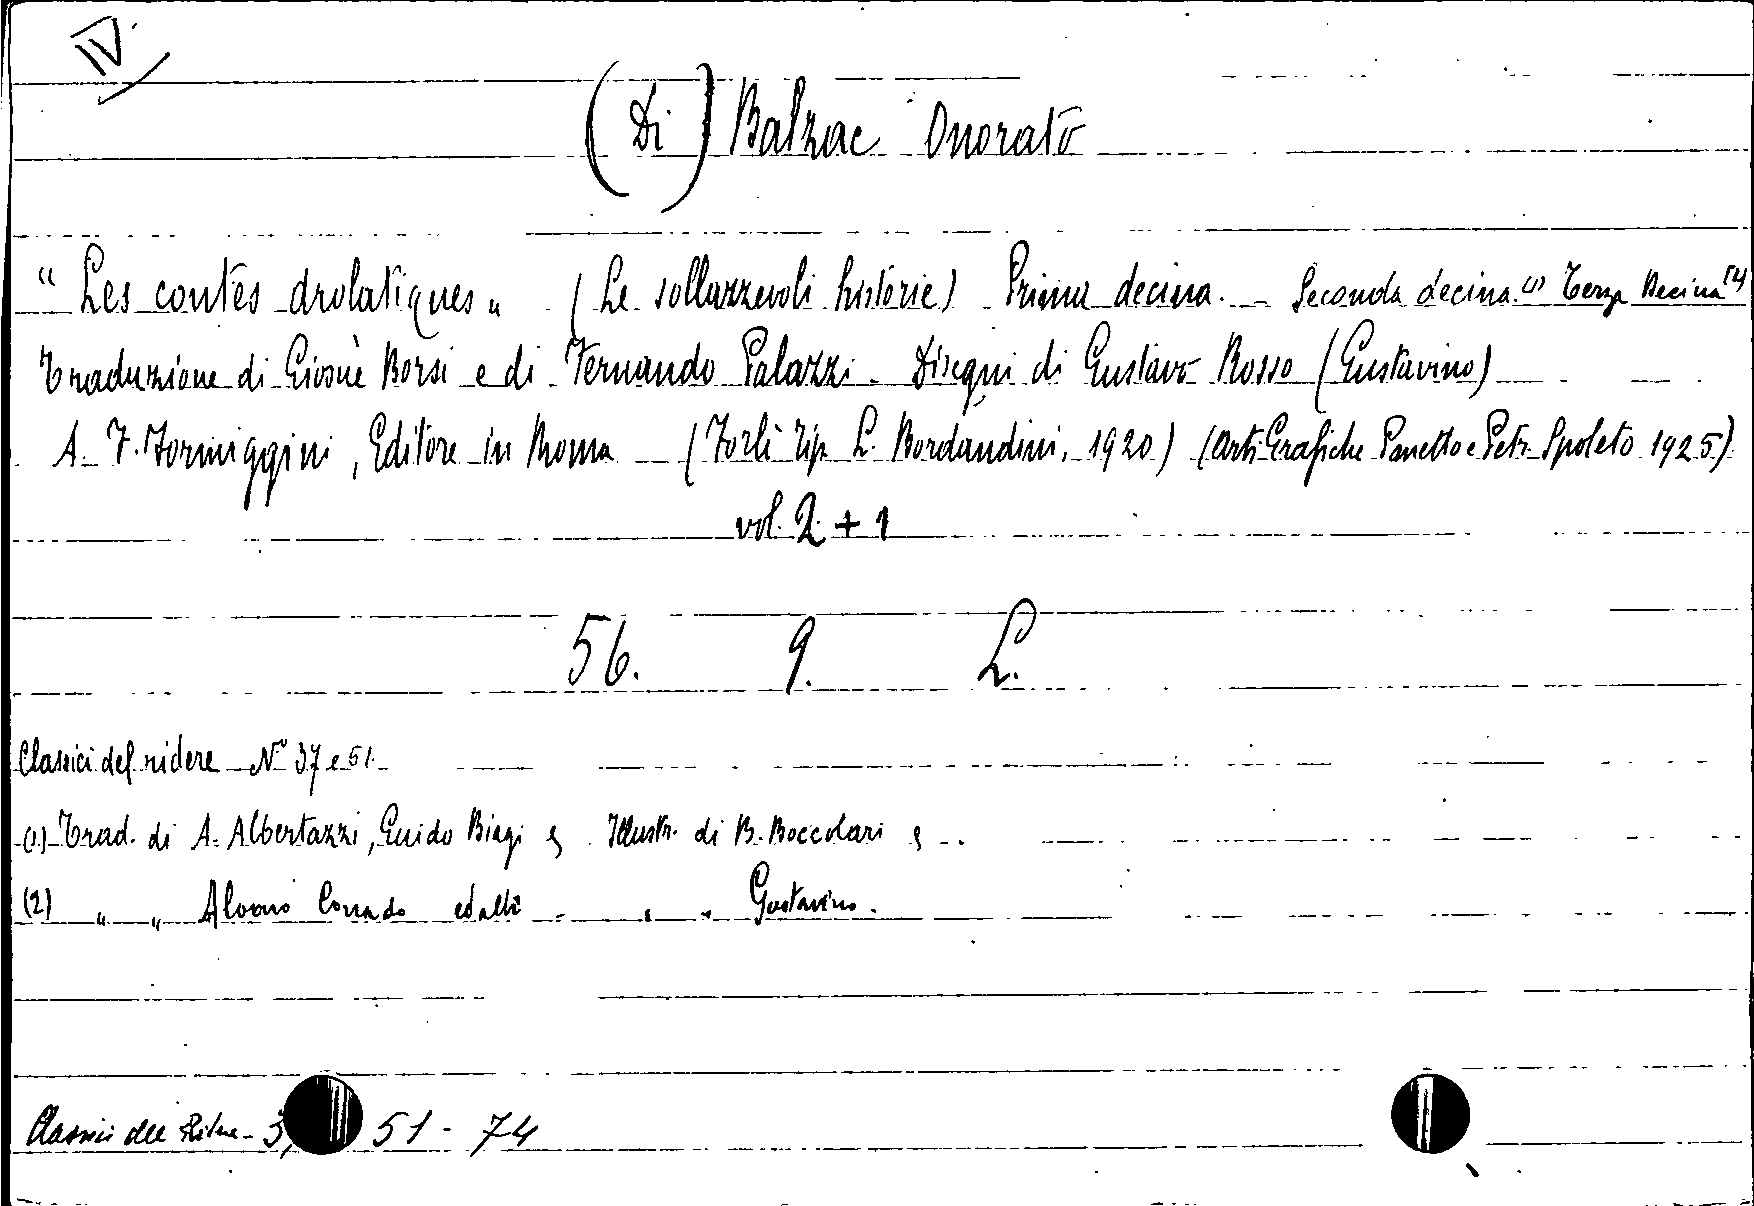 IV.
(Di) Balzac Onorato
"Les contes drolatiques" (Le sollazzevoli historie) Prima decina. - Seconda decina. (1) Terza Decina (2)
Traduzione di Giosuè Borsi e di Fernando Palazzi. Disegni di Gustavo Rosso (Gustavino)
A. F. Formiggini, Editore in Roma (Forlì Tip. L. Bordandini, 1920) (Arti Grafiche Panetto e Petr. Spoleto 1925)
vol. 2 + 1
56. 9. L.
Classici del ridere N° 37 e 51.
(1) Trad. di A. Albertazzi, Guido Biagi Illustr. di B. Boccolari
(2) " " Alvaro Corrado ed altri " " Gustavino.
Classici del Ridere - 3 51 - 74